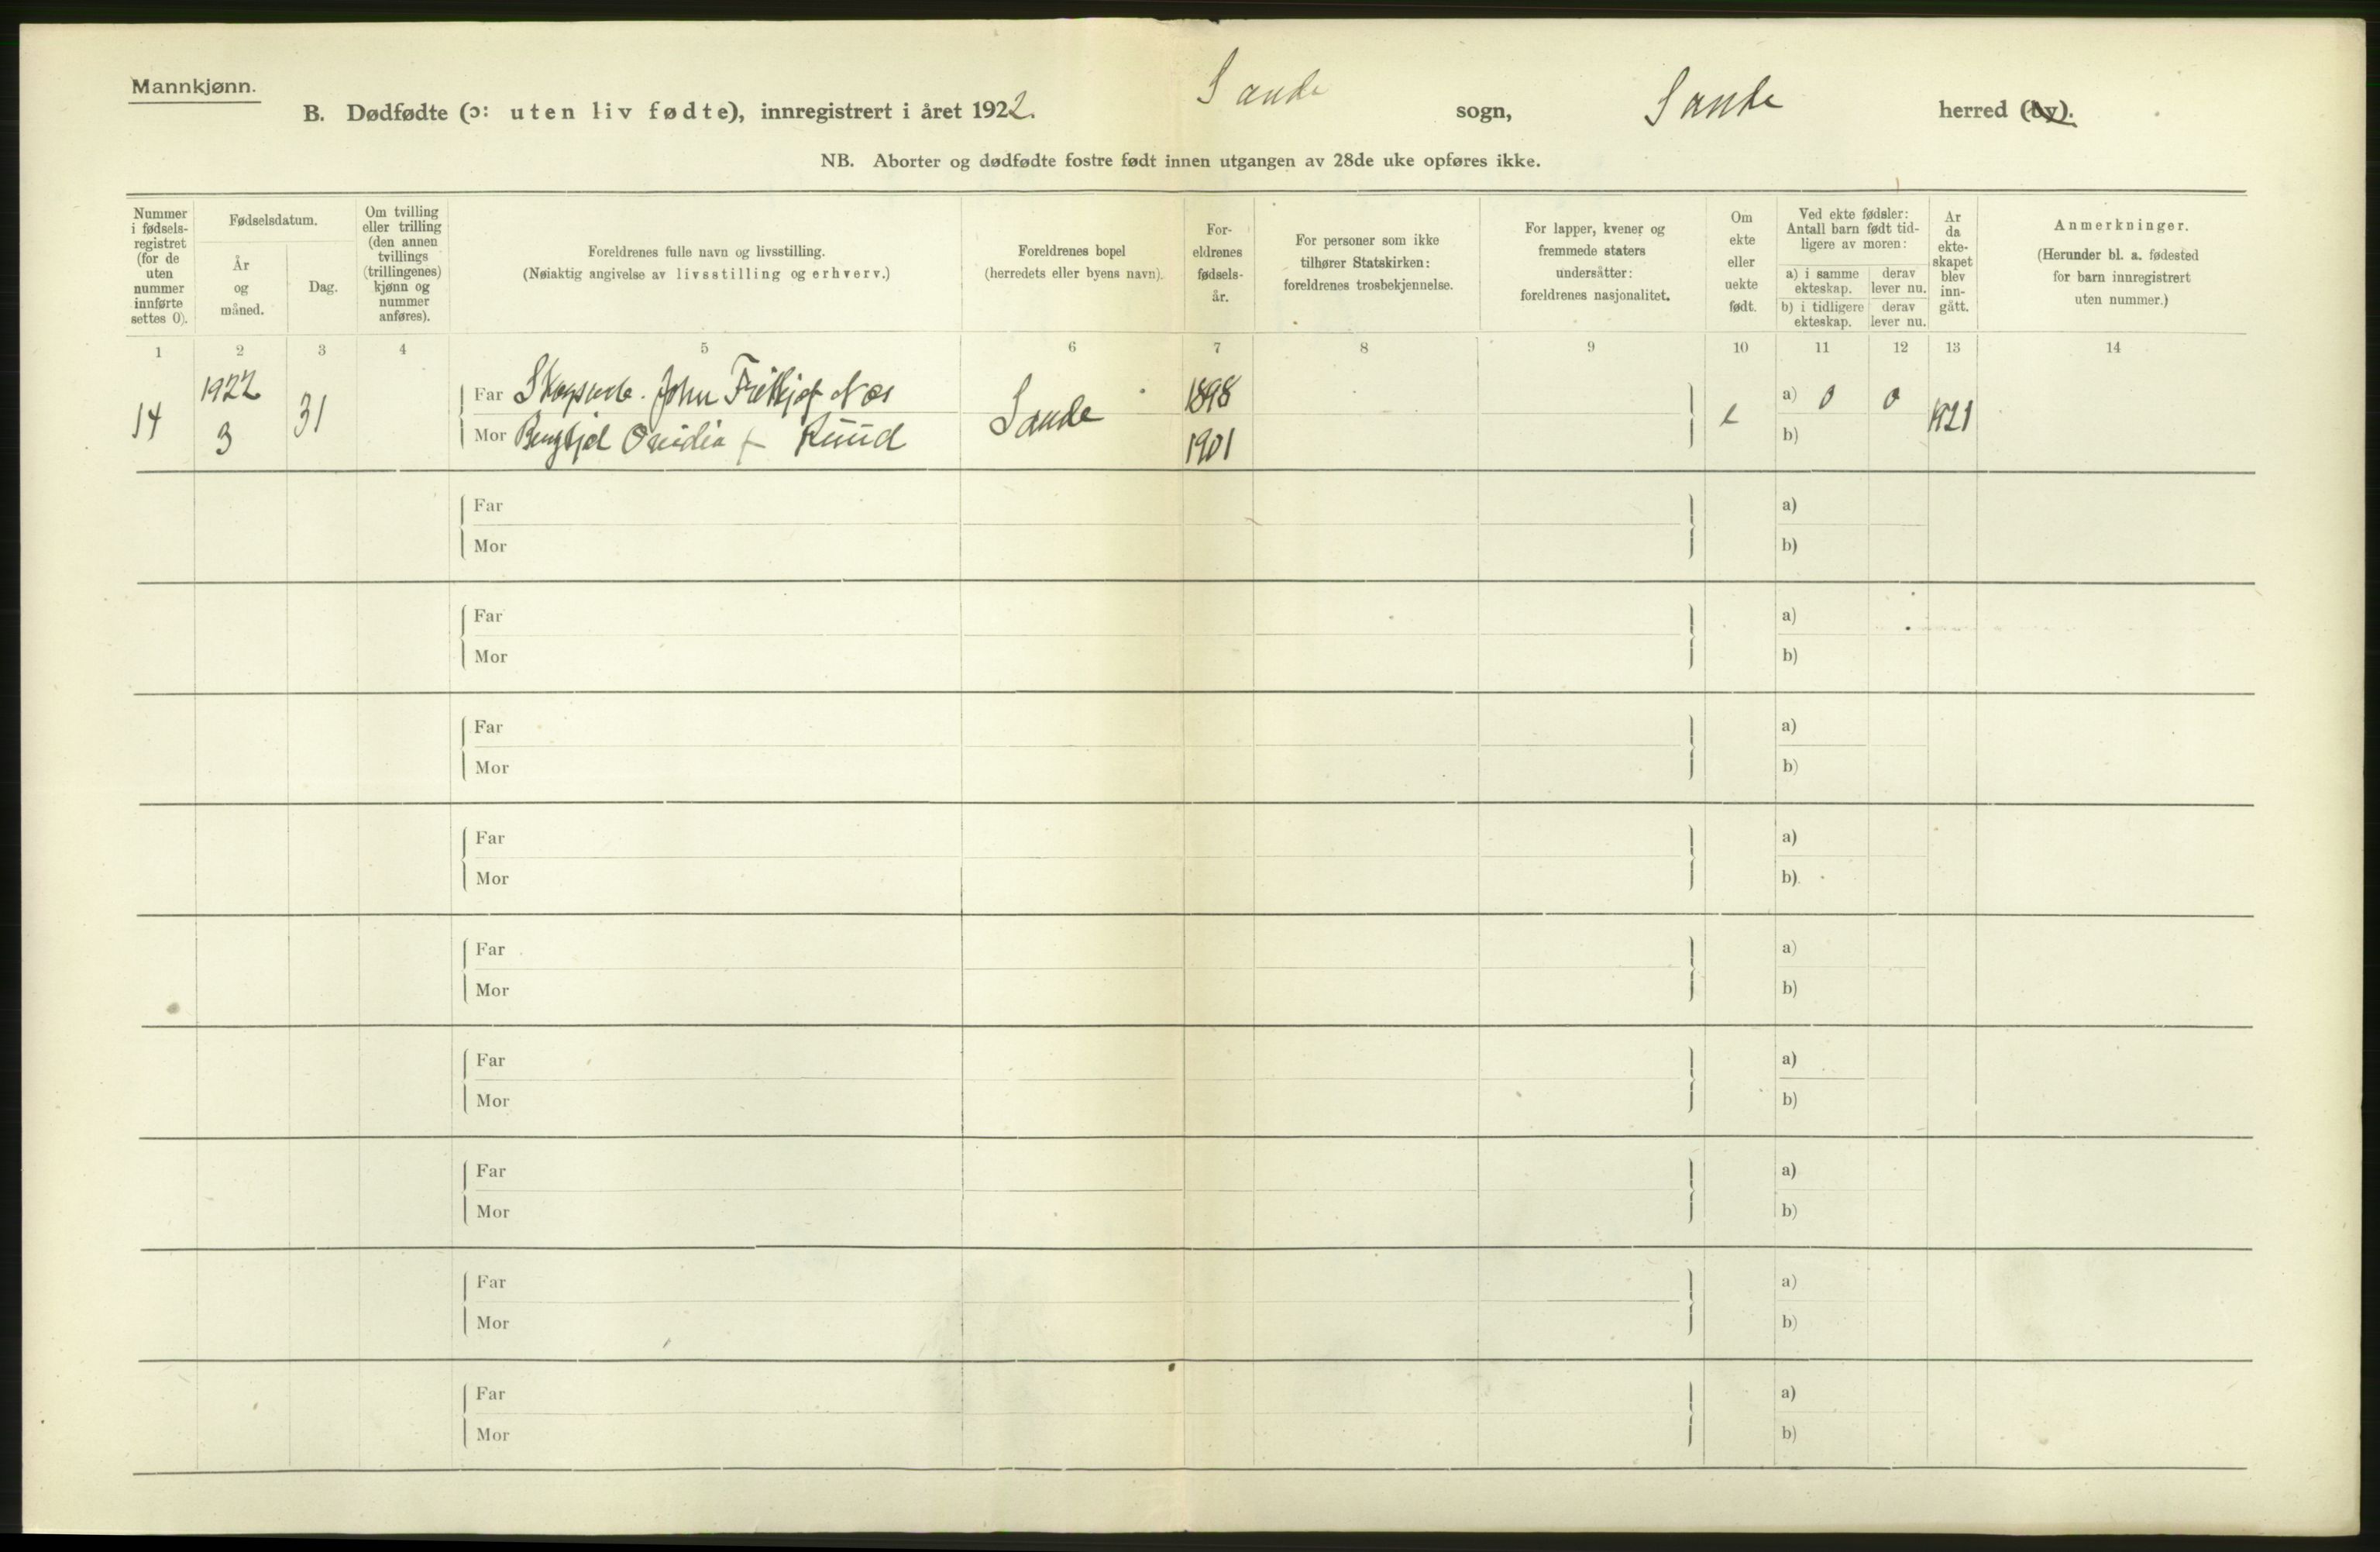 Mannkjønn.
B. Dødfødte (ɔ: uten liv fødte), innregistrert i året 1922. Sande sogn, Sande herred (by).
NB. Aborter og dødfødte fostre født innen utgangen av 28de uke opføres ikke.
Nummer i fødsels-registret (for de uten nummer innførte settes 0).
Fødselsdatum.
År og måned.
Dag.
Om tvilling eller trilling (den annen tvillings (trillingenes) kjønn og nummer anføres).
Foreldrenes fulle navn og livsstilling.
(Nøiaktig angivelse av livsstilling og erhverv.)
Foreldrenes bopel
(herredets eller byens navn).
For-eldrenes fødsels-år.
For personer som ikke tilhører Statskirken: foreldrenes trosbekjennelse.
For lapper, kvener og fremmede staters undersåtter: foreldrenes nasjonalitet.
Om ekte eller uekte født.
Ved ekte fødsler: Antall barn født tid-ligere av moren:
a) i samme ekteskap.
derav lever nu.
b) i tidligere ekteskap.
derav lever nu.
År da ekte-skapet blev inn-gått.
Anmerkninger.
(Herunder bl. a. fødested for barn innregistrert uten nummer.)
1 2 3 4 5 6 7 8 9 10 11 12 13 14
14 1922 3 31
Far John Næs 1898
Mor f. Ruud Sande 1901
e a) 0 0 1921
b)
Far a)
Mor b)
Far a)
Mor b)
Far a)
Mor b)
Far a)
Mor b)
Far a)
Mor b)
Far a)
Mor b)
Far a)
Mor b)
Far a)
Mor b)
Far a)
Mor b)